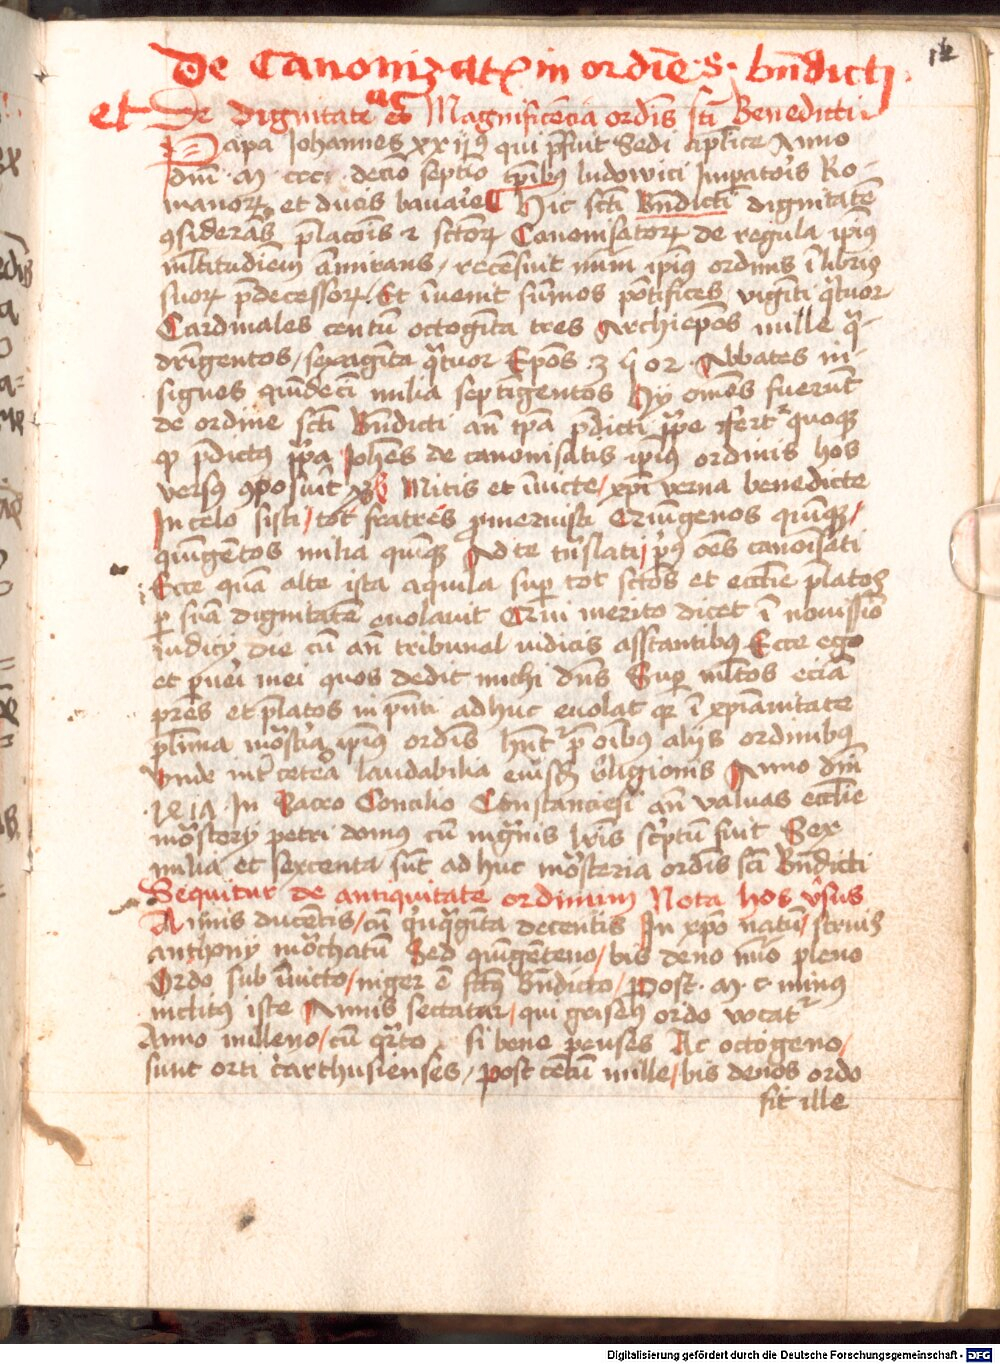 De Canonizatꝭ in ordīe · S · bn̄dicti
12
et De dignitate ac Magnificēcia ordīs sc̄i Benedicti
Papa Johannes xxijꝰ qui p̄fuit Sedi aplīce Anno
dm̄ · M · ccc · decīo septīo tp̄ibꝰ ludowici Imp̄atoīs Ro-
manoꝝ et ducis bavaīe Hic sc̄ti Bn̄dicti dignitatē
ꝯsiderās p̄latoīs ⁊ sc̄toꝝ Canonisatoꝝ de regula ip̄iꝰ
ml̄titudīem āmirans / recēsuit nūm ip̄iꝰ ordinis ī libris
suoꝝ p̄decessoꝝ / Et īuenit sūmos pōtifices viginti qͣtuor
Cardinales centū octogīta tres Archiep̄os mille qͣ-
dringentos / sexagīta qͣtuor Ep̄os · 3502 · Abbates in-
signes quīdecī milia septīgentos Hy om̄es fuerūt
de ordine sc̄ti Bn̄dicti an̄ tp̄a p̄dicti pp̄e ꝯfert᷑ quoqꝫ
ꝙ p̄dictꝰ pp̄a Joh̄es de canonisatis ip̄iꝰ ordinis hos
versꝰ ꝯposuit Mitis et īuicte / xp̄i verna benedicte
In celo sisti / tot fratres ꝓmeruisti Ter v̄genos quīqꝫ /
quīgētos milia quīqꝫ Ad te trāslati / pꝰ oēs canōisati
Ecce quā alte ista aquila sup̄ tot sc̄tos et ecclīe p̄latos
ꝑ suā dignitatē euolauit Cui merito dicet ī nouissīo
iudicij die cū an̄ tribunal iudicis asstantibꝰ Ecce ego
et pueri mei quos dedit michi dn̄s Sup̄ ml̄tos eciā
pr̄es et p̄latos in p̄nti adhuc euolat qꝛ ī xp̄ianitate
pl̄ima mōstīa ip̄iꝰ ordīs hn̄t᷑ p̄ oībꝰ alijs ordinibꝰ
Vnde int̄ cetēa laudabilia eiusdē religionis Anno dm̄
1417 In Sacro Concilio Constanciēsi an̄ valuas ecclīe
mōstorij petri domꝰ cū mgͣnis lr̄is sc̄ptum fuit Sex
milia et sexcenta sūt adhuc mōsteria ordīs sc̄i Bn̄dicti
Sequitur de antiquitate ordinum Nota hos v̄sus
Annis ducētis / cū qͥnqͣgīta decentis In xp̄o natū / scruis
anthony mōchatū Sed quīgēteno / bis deno nūo pleno
Ordo sub īuicto / niger ē sc̄tꝰ Bn̄dicto / Post · M · c · minꝰ
inclitꝰ iste Annis sectatur / qui griseꝰ ordo vocat᷑
Anno milleno / cū qͣrto si bene penses Ac octogeno /
sunt orti carthusienses / post cētū mille / bis denos ordo
fit ille
Digitalisierung gefördert durch die Deutsche Forschungsgemeinschaft - DFG